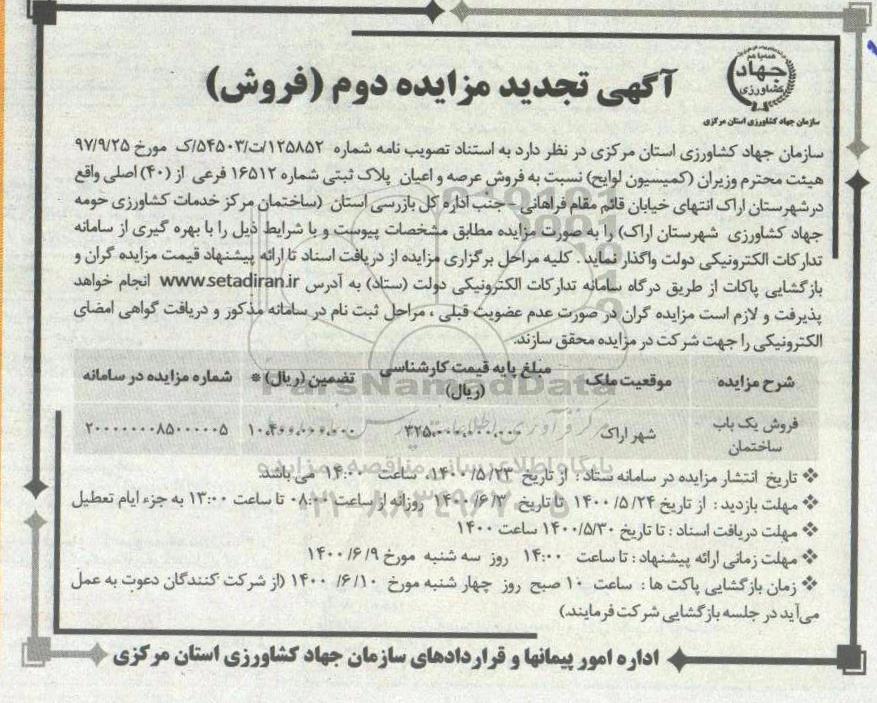 همپا هم
جهاد
کشاورزی
سازمان جهاد کشاورزی استان مرکزی
آگهی تجدید مزایده دوم (فروش)
سازمان جهاد کشاورزی استان مرکزی در نظر دارد به استناد تصویب نامه شماره ۱۲۵۸۵۲/ت/۵۴۵۰۳/ک مورخ ۹۷/۹/۲۵
هیئت محترم وزیران (کمیسیون لوایح) نسبت به فروش عرصه و اعیان پلاک ثبتی شماره ۱۶۵۱۲ فرعی از (۴۰) اصلی واقع
درشهرستان اراک انتهای خیابان قائم مقام فراهانی - جنب اداره کل بازرسی استان (ساختمان مرکز خدمات کشاورزی حومه
جهاد کشاورزی شهرستان اراک) را به صورت مزایده مطابق مشخصات پیوست و با شرایط ذیل را با بهره گیری از سامانه
تدارکات الکترونیکی دولت واگذار نماید. کلیه مراحل برگزاری مزایده از دریافت اسناد تا ارائه پیشنهاد قیمت مزایده گران و
بازگشایی پاکات از طریق درگاه سامانه تدارکات الکترونیکی دولت (ستاد) به آدرس www.setadiran.ir انجام خواهد
پذیرفت و لازم است مزایده گران در صورت عدم عضویت قبلی، مراحل ثبت نام در سامانه مذکور و دریافت گواهی امضای
الکترونیکی را جهت شرکت در مزایده محقق سازند.
شرح مزایده موقعیت ملک مبلغ پایه قیمت کارشناسی (ریال) تضمین (ریال) * شماره مزایده در سامانه
ParsNamadData
فروش یک باب ساختمان شهر اراک ۳۲۵.۰۰۰.۰۰۰.۰۰۰ ۲۰۰۰۰۰۰۰۸۵۰۰۰۰۰۵
پایگاه اطلاع رسانی مناقصه و مزایده
❖ تاریخ انتشار مزایده در سامانه ستاد : از تاریخ ۱۴۰۰/۵/۲۳ ساعت ۱۴:۰۰ می باشد.
❖ مهلت بازدید : از تاریخ ۱۴۰۰/۵/۲۴ تا تاریخ ۱۴۰۰/۶/۳ روزانه از ساعت ۰۸:۰۰ تا ساعت ۱۳:۰۰ به جزء ایام تعطیل
❖ مهلت دریافت اسناد : تا تاریخ ۱۴۰۰/۵/۳۰ ساعت ۱۴:۰۰
❖ مهلت زمانی ارائه پیشنهاد : تا ساعت ۱۴:۰۰ روز سه شنبه مورخ ۱۴۰۰/۶/۹
❖ زمان بازگشایی پاکت ها : ساعت ۱۰ صبح روز چهار شنبه مورخ ۱۴۰۰/۶/۱۰ (از شرکت کنندگان دعوت به عمل
می آید در جلسه بازگشایی شرکت فرمایند.)
اداره امور پیمانها و قراردادهای سازمان جهاد کشاورزی استان مرکزی